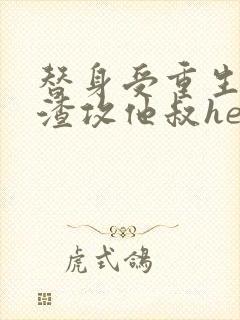 替身受重生
渣攻他叔he
虎式鸽